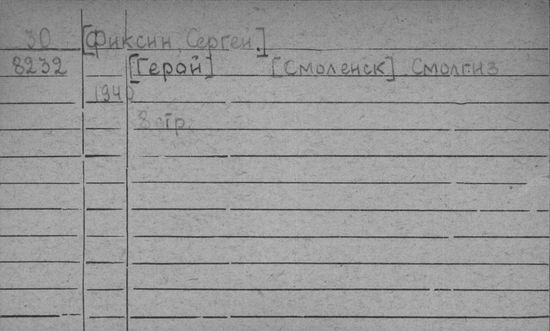 30 [Фиксин, Сергей.]
8232 [Герой] [Смоленск] Смолгиз
1940
8 стр.